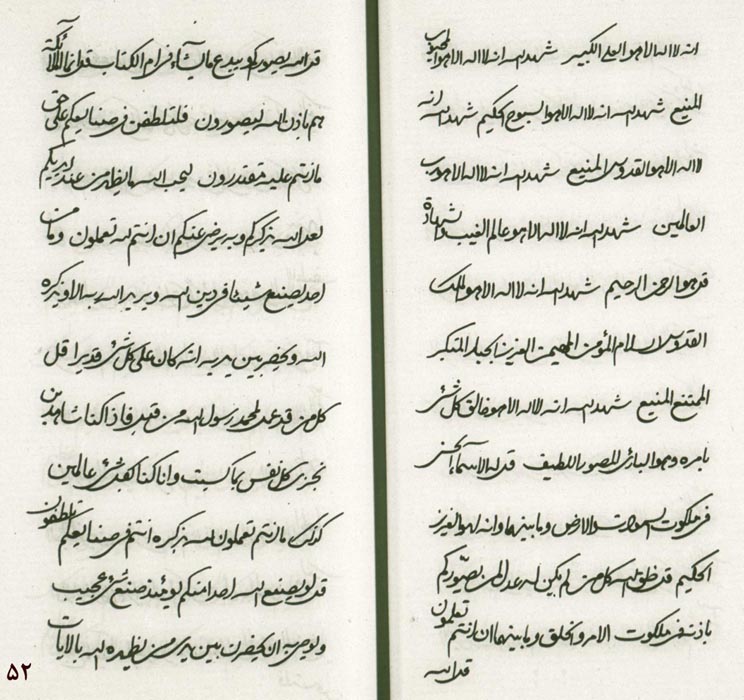 انه لا اله الا هو العلی الکبیر شهد الله انه لا اله الا هو المحبوب
المنیع شهد الله انه لا اله الا هو السبوح الحکیم شهد الله انه
لا اله الا هو القدوس المنیع شهد الله انه لا اله الا هو رب
العالمین شهد الله انه لا اله الا هو عالم الغیب والشهادة
قل هو الرحمن الرحیم شهد الله انه لا اله الا هو الملک
القدوس السلام المؤمن المهیمن العزیز الجبار المتکبر
الممتنع المنیع شهد الله انه لا اله الا هو خالق کل شئ
بامره وهو البارئ المصور اللطیف قل له الاسماء الحسنی
فی ملکوت السموات والارض وما بینهما وانه لهو العزیز
الحکیم قد خلق الله کل من لم یکن له عدل لن یصورکم
باذنه فی ملکوت الامر والخلق وما بینهما ان انتم تعلمون
قل الله
قل الله یصورکم ویبدع ما یشاء فی ام الکتاب قل انما الملائکة
هم باذن الله لیصورون فلتلطفن فی صنایعکم علی حق
ما انتم علیه مقتدرون لیحب الله ما یظهر من عند ایدیکم
لعل الله یزکیکم وبه یرضی عنکم ان انتم لله تعملون وما من
احد یصنع شیئا فی دین الله ویرید الله ربه الا ویذکره
الله ویحضر بین یدیه انه کان علی کل شئ قدیرا قل
کل من قد عمل لمحمد رسول الله من قبل فاذا کنا شاهدین
نجزی کل نفس بما کسبت وانا کنا بکل شئ عالمین
کذلک ما انتم تعملون لمن یذکره انتم فی صنایعکم تلطفون
قل لو یصنع الله احد منکم یومئذ صنع شئ عجیب
ولیوصی به ان یحضرن بین یدی من یظهره الله بالایات
۵۲